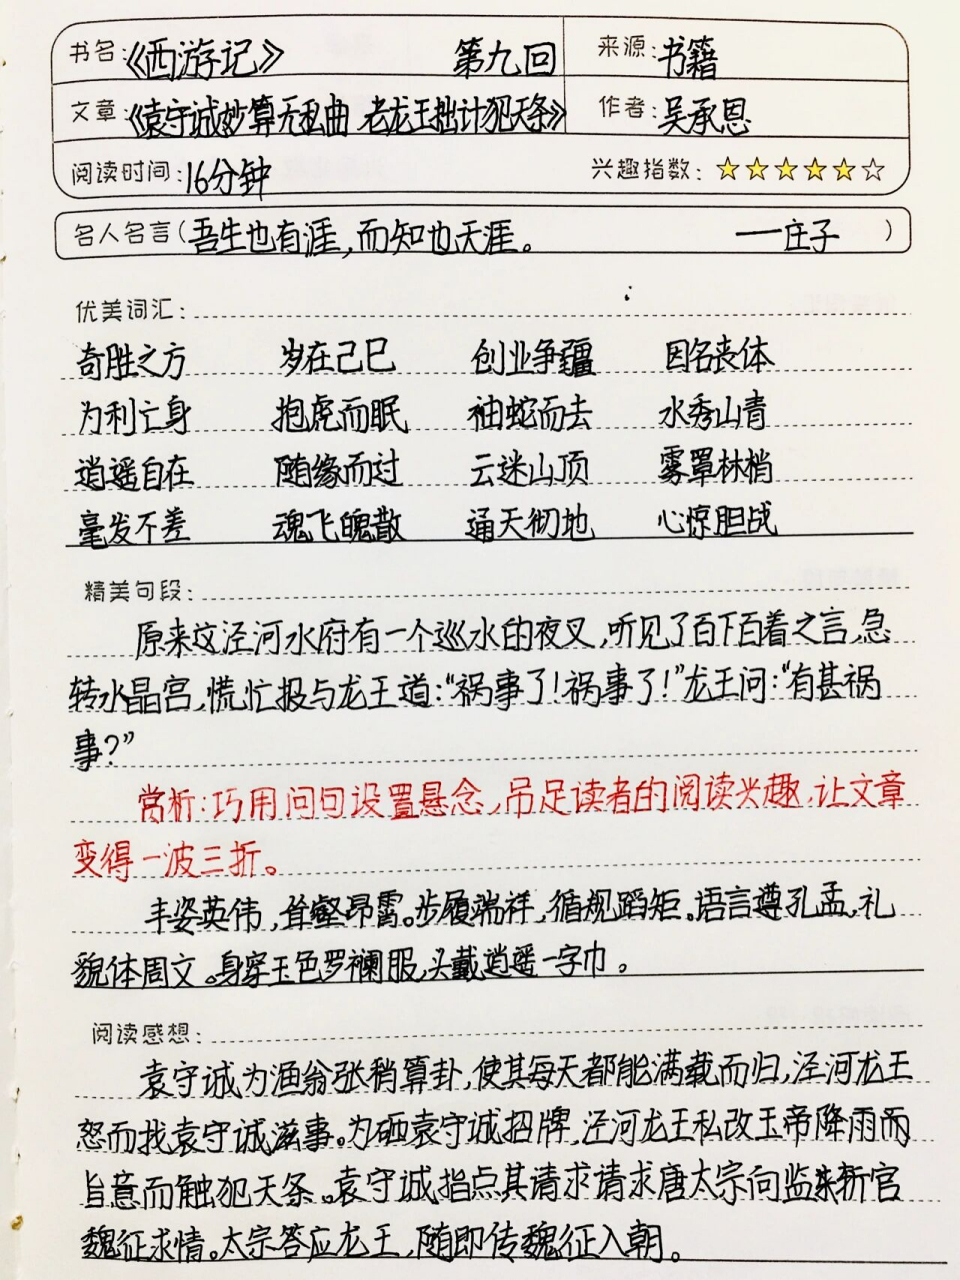 书名:《西游记》 第九回 来源:书籍
文章:《袁守诚妙算无私曲 老龙王拙计犯天条》 作者:吴承恩
阅读时间:16分钟 兴趣指数:★★★★★☆
名人名言(吾生也有涯,而知也天涯。 ——庄子)
优美词汇:
奇胜之方 岁在己巳 创业争疆 因名丧体
为利亡身 抱虎而眠 袖蛇而去 水秀山青
逍遥自在 随缘而过 云迷山顶 雾罩林梢
毫发不差 魂飞魄散 通天彻地 心惊胆战
精美句段:
原来这泾河水府有一个巡水的夜叉,听见了百下百着之言,急
转水晶宫,慌忙报与龙王道:“祸事了!祸事了!”龙王问:“有甚祸
事?”
赏析:巧用问句设置悬念,吊足读者的阅读兴趣,让文章
变得一波三折。
丰姿英伟,耸壑昂霄。步履端祥,循规蹈矩。语言遵孔孟,礼
貌体周文。身穿玉色罗襕服,头戴逍遥一字巾。
阅读感想:
袁守诚为渔翁张稍算卦,使其每天都能满载而归,泾河龙王
怒而找袁守诚滋事。为砸袁守诚招牌,泾河龙王私改玉帝降雨而
旨意而触犯天条。袁守诚指点其请求请求唐太宗向监斩官
魏征求情。太宗答应龙王,随即传魏征入朝。